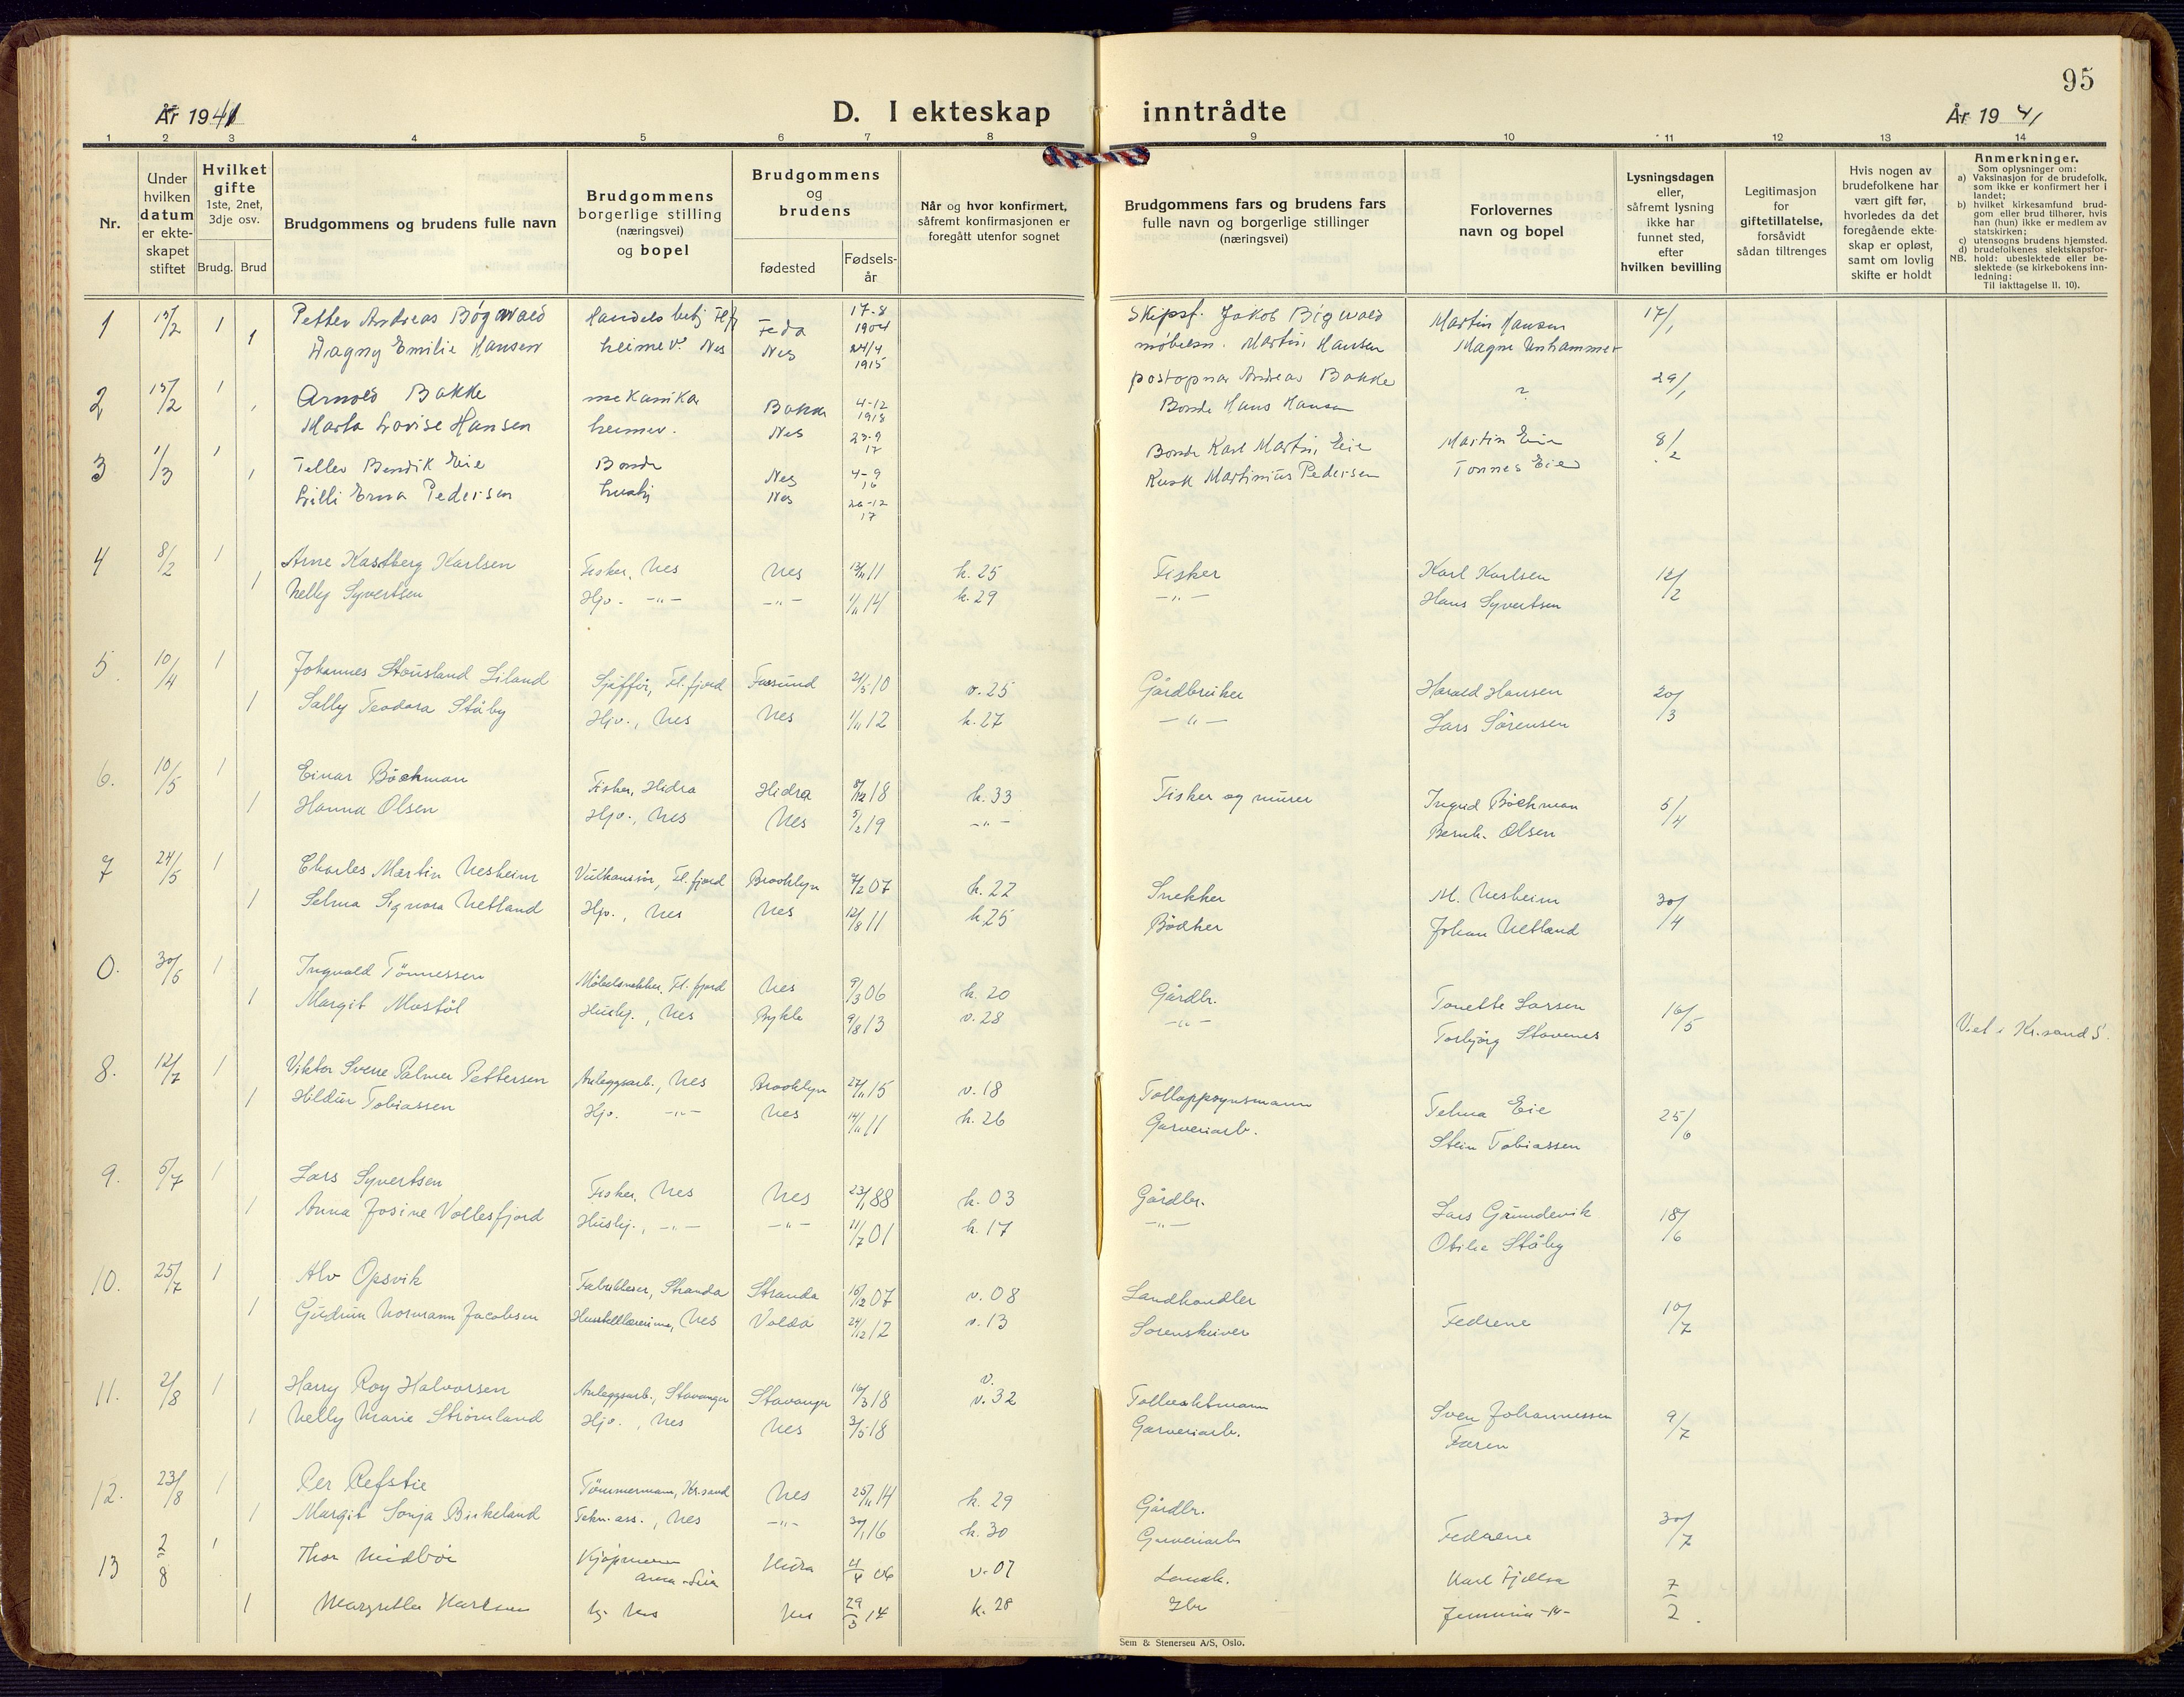 95
År 1941
D. I ekteskap inntrådte
År 1941
1 2 3 4 5 6 7 8 9 10 11 12 13 14
Nr.
Under hvilken datum er ekteskapet stiftet
Hvilket gifte 1ste, 2net, 3dje osv.
Brudg. Brud
Brudgommens og brudens fulle navn
Brudgommens borgerlige stilling (næringsvei) og bopel
Brudgommens og brudens
fødested
Fødselsår
Når og hvor konfirmert, såfremt konfirmasjonen er foregått utenfor sognet
Brudgommens fars og brudens fars fulle navn og borgerlige stillinger (næringsvei)
Forlovernes navn og bopel
Lysningsdagen eller, såfremt lysning ikke har funnet sted, efter hvilken bevilling
Legitimasjon for giftetillatelse, forsåvidt sådan tiltrenges
Hvis nogen av brudefolkene har vært gift før, hvorledes da det foregående ekteskap er opløst, samt om lovlig skifte er holdt
Anmerkninger.
Som oplysninger om:
a) Vaksinasjon for de brudefolk, som ikke er konfirmert her i landet;
b) hvilket kirkesamfund brudgom eller brud tilhører, hvis han (hun) ikke er medlem av statskirken;
c) utensogns brudens hjemsted.
d) brudefolkenes slektskapsforhold: ubeslektede eller beslektede (se kirkebokens innledning:
NB.
Til iakttagelse II. 10).
1 15/2 1 Petter Andreas Bøgwald Handelsbetj Feda 17-8 1904 Skipsf. Jakob Bøgwald Martin Hansen 17/1
1 Dagny Emilie Hansen heimev. Nes Nes 24/4 1915 møbelsn. Martin Hansen Magne Unhammer
2 15/2 1 Arnold Bakke mekaniker Bakke 4-12 1918 postopnar Andreas Bakke ? 29/1
1 Marta Lovise Hansen heimev. Nes 23-9 17 Bonde Hans Hansen
3 1/3 1 Tellev Bendik Eie Bonde Nes 4-9 16 Bonde Karl Martin Eie Martin Eie 8/2
1 Lilli Erna Pedersen hushj Nes 26-12 17 Kusk Martinius Pedersen Tønnes Eie
4 8/2 1 Arne Kastberg Karlsen Fisker, Nes Nes 13/11 11 k. 25 Fisker Karl Karlsen 12/2
1 Nelly Syvertsen Hjv. -"- -"- 1/11 14 k. 29 -"- Hans Syvertsen
5. 10/4 1 Johannes Stousland Liland Sjåfför, Fl.fjord Farsund 21/5 10 v. 25 Gårdbruker Harald Hansen 20/3
1 Sally Teodora Ståby Hjv., Nes Nes 1/11 12 k. 27 -"- Lars Sørensen
6. 10/5 1 Einar Böckman Fisker, Hidra Hidra 8/12 18 k. 33 Fisker og murer Ingrid Böckman 5/4
1 Hanna Olsen Hjv., Nes Nes 5/2 19 -"- Bernh. Olsen
7 24/5 1 Charles Martin Nesheim Vulkanisør, Fl.fjord Brooklyn 7/2 07 k. 22 Snekker M. Nesheim 30/4
1 Selma Signora Netland Hjv., Nes Nes 12/8 11 k. 25 Bödker Johan Netland
0. 30/5 1 Ingvald Tönnessen Möbelsnekker, Fl.fjord Nes 9/3 06 k. 20 Gårdbr. Tonette Larsen 16/5
1 Margit Mostöl Hushj., Nes Bykle 9/8 13 v. 28 -"- Torbjørg Stavenes Viet i Kr.sand S.
8. 12/7 1 Viktor Sverre Palmer Pettersen Anleggsarb., Nes Brooklyn 27/11 15 v. 18 Tolloppsynsmann Telma Eie 25/6
1 Hildur Tobiassen Hjv. -"- Nes 14/11 11 k. 26 Garveriarb. Stein Tobiassen
9. 5/7 1 Lars Syvertsen Fisker, Nes Nes 23/1 88 k. 03 Gårdbr. Lars Grundevik 18/6
1 Anna Josine Vollesfjord Hushj., -"- -"- 11/7 01 k. 17 -"- Otilie Ståby
10. 25/7 1 Alv Opsvik Fabrikkeier, Stranda Stranda 16/12 07 v. 08 Landhandler Fedrene 10/7
1 Gudrun Normann Jacobsen Husstellærerinne, Nes Volda 24/12 12 v. 13 Sorenskriver
11. 2/8 1 Harry Roy Halvorsen Anleggsarb., Stavanger Stavanger 16/3 18 v. v. 32 Tollvaktmann Sven Johannessen 9/7
1 Nelly Marie Strömland Hjv., Nes Nes 3/5 18 Garveriarb. Faren
12. 23/8 1 Per Refstie Tömmermann, Kr.sand Nes 25/11 14 k. 29 Gårdbr. Fedrene 30/7
1 Margit Sonja Birkeland Tekn. ass., Nes -"- 30/1 16 k. 30 Garveriarb
13 2/8 1 Thor Midbøe Kjøpmann Anna-Sira Hidra 4/4 06 v. 07 Landh. Karl Fjellså 7/2
1 Margretha Karlsen hj. Nes Nes 29/3 14 k. 28 Gbr Jemmina -"-
Sem & Stenersen A/S, Oslo.